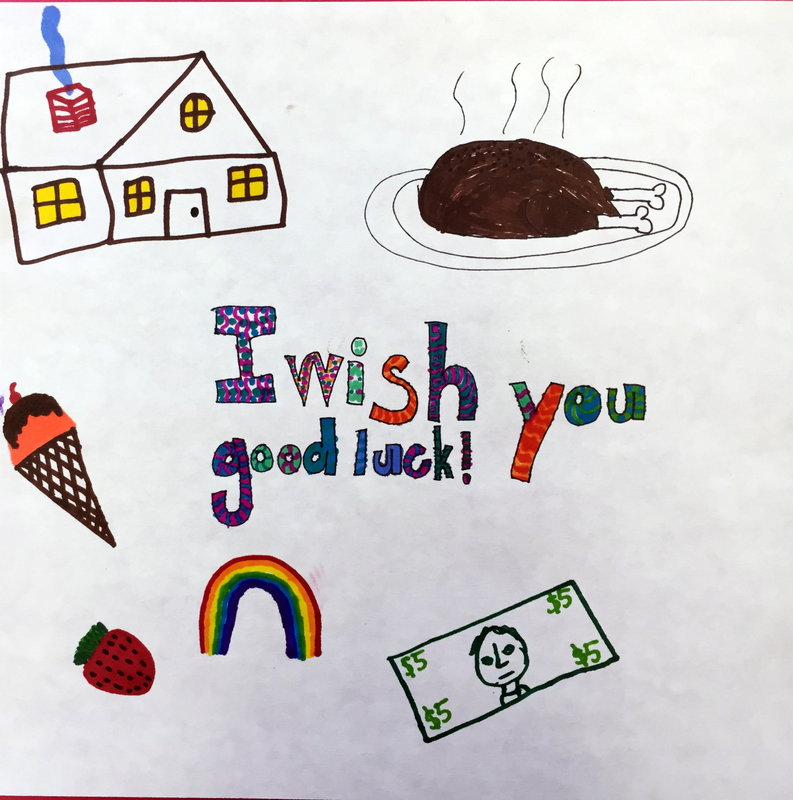 I wish you
good luck!
$5
$5
$5
$5